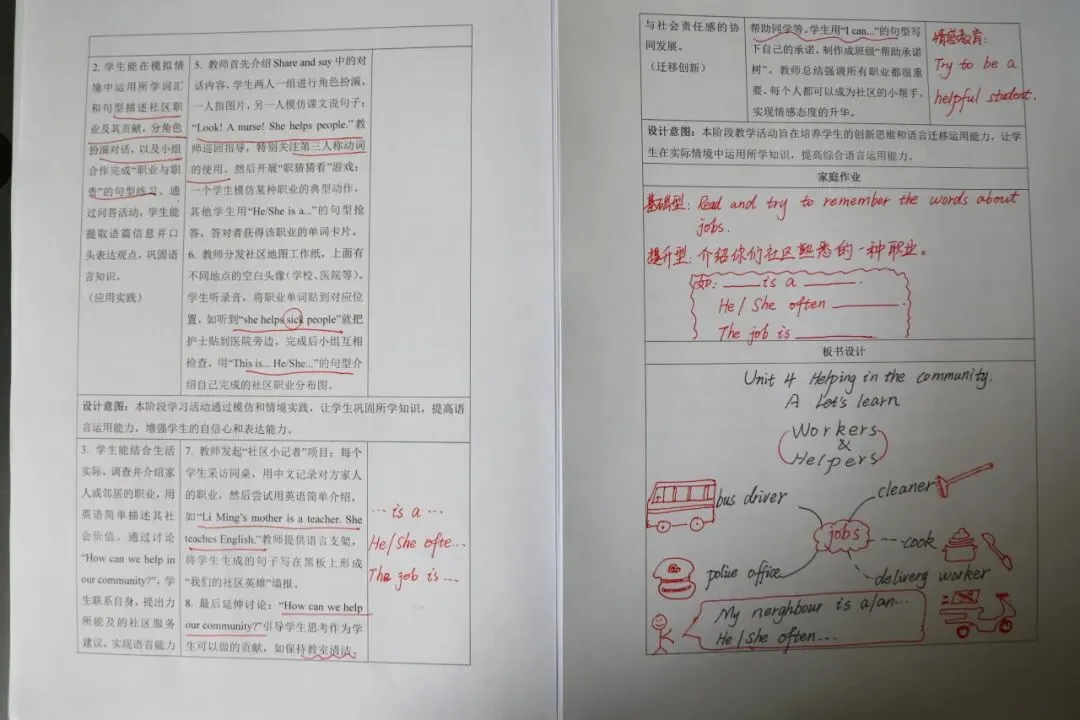 2. 学生能在模拟情
境中运用所学词汇
和句型描述社区职
业及其贡献,分角色
扮演对话,以及小组
合作完成“职业与职
责”的句型练习。通
过问答活动,学生能
提取语篇信息并口
头表达观点,巩固语
言知识。
(应用实践)
5. 教师首先介绍 Share and say 中的对
话内容,学生两人一组进行角色扮演,
一人指图片,另一人模仿课文说句子:
“Look! A nurse! She helps people.”教
师巡回指导,特别关注第三人称动词
的使用。然后开展“职猜猜看”游戏:
一个学生模仿某种职业的典型动作,
其他学生用“He/She is a...”的句型抢
答,答对者获得该职业的单词卡片。
6. 教师分发社区地图工作纸,上面有
不同地点的空白头像(学校、医院等)。
学生听录音,将职业单词贴到对应位
置,如听到“she helps sick people”就把
护士贴到医院旁边。完成后小组互相
检查,用“This is... He/She...”的句型介
绍自己完成的社区职业分布图。
设计意图:本阶段学习活动通过模仿和情境实践,让学生巩固所学知识,提高语
言运用能力,增强学生的自信心和表达能力。
3. 学生能结合生活
实际,调查并介绍家
人或邻居的职业,用
英语简单描述其社
会价值。通过讨论
“How can we help in
our community?”,学
生联系自身,提出力
所能及的社区服务
建议,实现语言能力
7. 教师发起“社区小记者”项目:每个
学生采访同桌,用中文记录对方家人
的职业,然后尝试用英语简单介绍,
如“Li Ming's mother is a teacher. She
teaches English.”教师提供语言支架,
将学生生成的句子写在黑板上形成
“我们的社区英雄”墙报。
8. 最后延伸讨论:“How can we help
our community?”引导学生思考作为学
生可以做的贡献,如保持教室清洁、
... is a ...
He/She ofte...
The job is ...
与社会责任感的协
同发展。
(迁移创新)
帮助同学等。学生用“I can...”的句型写
下自己的承诺,制作成班级“帮助承诺
树”。教师总结强调所有职业都很重
要,每个人都可以成为社区的小帮手,
实现情感态度的升华。
情感教育:
Try to be a
helpful student.
设计意图:本阶段教学活动旨在培养学生的创新思维和语言迁移运用能力,让学
生在实际情境中运用所学知识,提高综合语言运用能力。
家庭作业
基础型: Read and try to remember the words about
jobs.
提升型: 介绍你们社区熟悉的一种职业。
如: ____ is a ____.
He / She often ____.
The job is ____
板书设计
Unit 4 Helping in the community.
A Let's learn
Workers
&
Helpers
bus driver
cleaner
jobs
cook
police office
delivery worker
My neighbour is a/an...
He/she often...